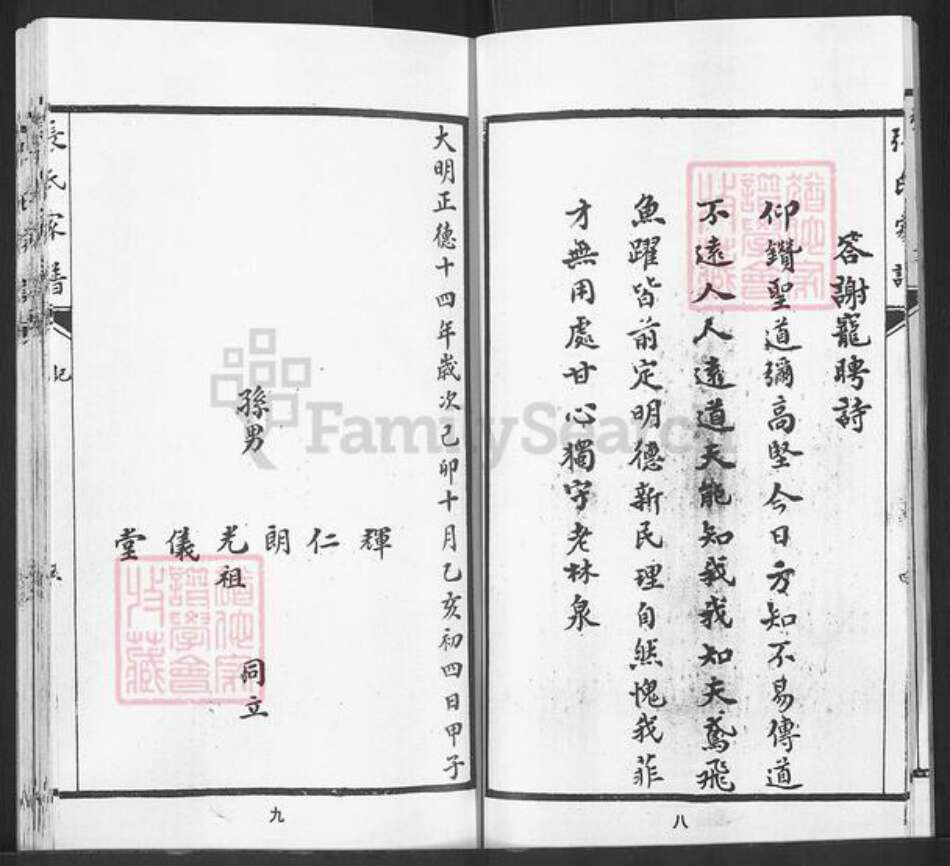 答謝寵聘詩
仰鑽聖道彌高堅今日方知不易傳道
不遠人人遠道天能知我我知天鳶飛
魚躍皆前定明德新民理自然愧我菲
才無用處甘心獨守老林泉
八
大明正德十四年歲次己卯十月乙亥初四日甲子
孫男
輝仁朗光祖儀堂
同立
氏家譜
記
九
FamilySearch